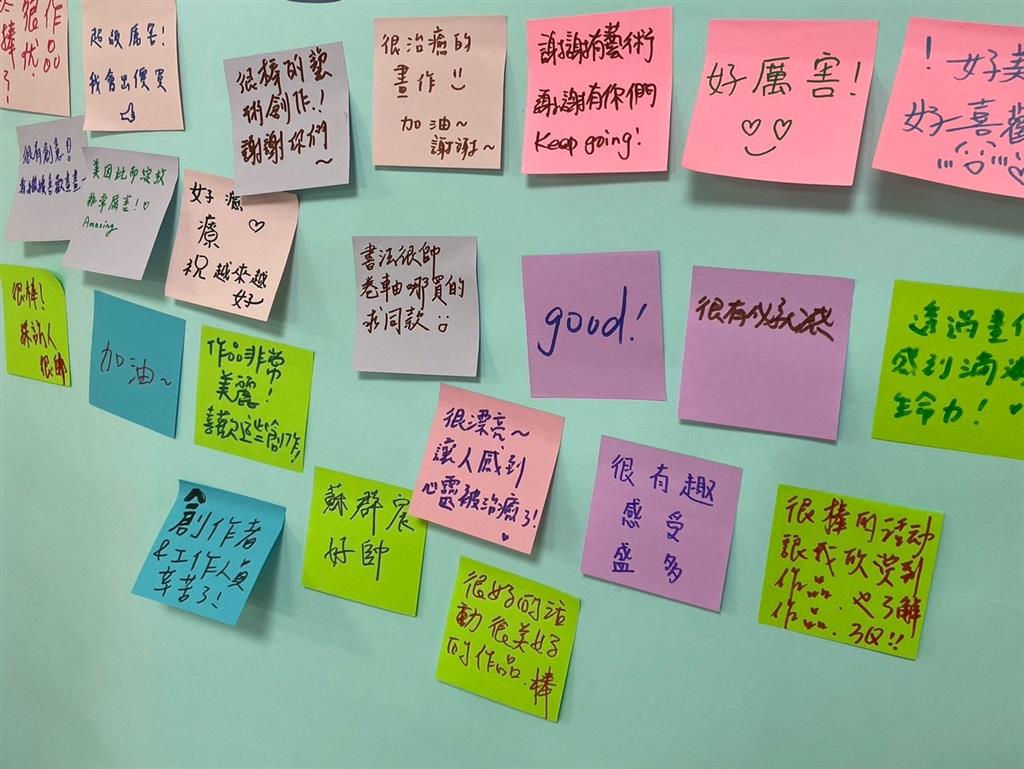 作品
很优.
棒了!
超級厲害!
我會出價買
很棒的藝
術創作.!
謝謝你們
~
很治癒的
畫作
加油~
謝謝~
謝謝有藝術
謝謝有你們
Keep going!
好厲害!
! 好美
好喜歡
很有創意!
美因此而綻放
非常厲害!
Amazing
好療
癒
祝越來越
好
書法很帥
卷軸哪買的
求同款
good!
很有成就感
透過畫作
感到滿滿
生命力!
很棒!
很帥
加油~
作品非常
美麗!
喜歡這些創作!
很漂亮~
讓人感到
心靈被治癒了!
很有趣
感受
盛多
創作者
&工作人員
辛苦了!
蘇群宸
好帥
很好的活
動很美好
的作品.棒
很棒的活动
讓我欣赏到
作品.也了解
作品.